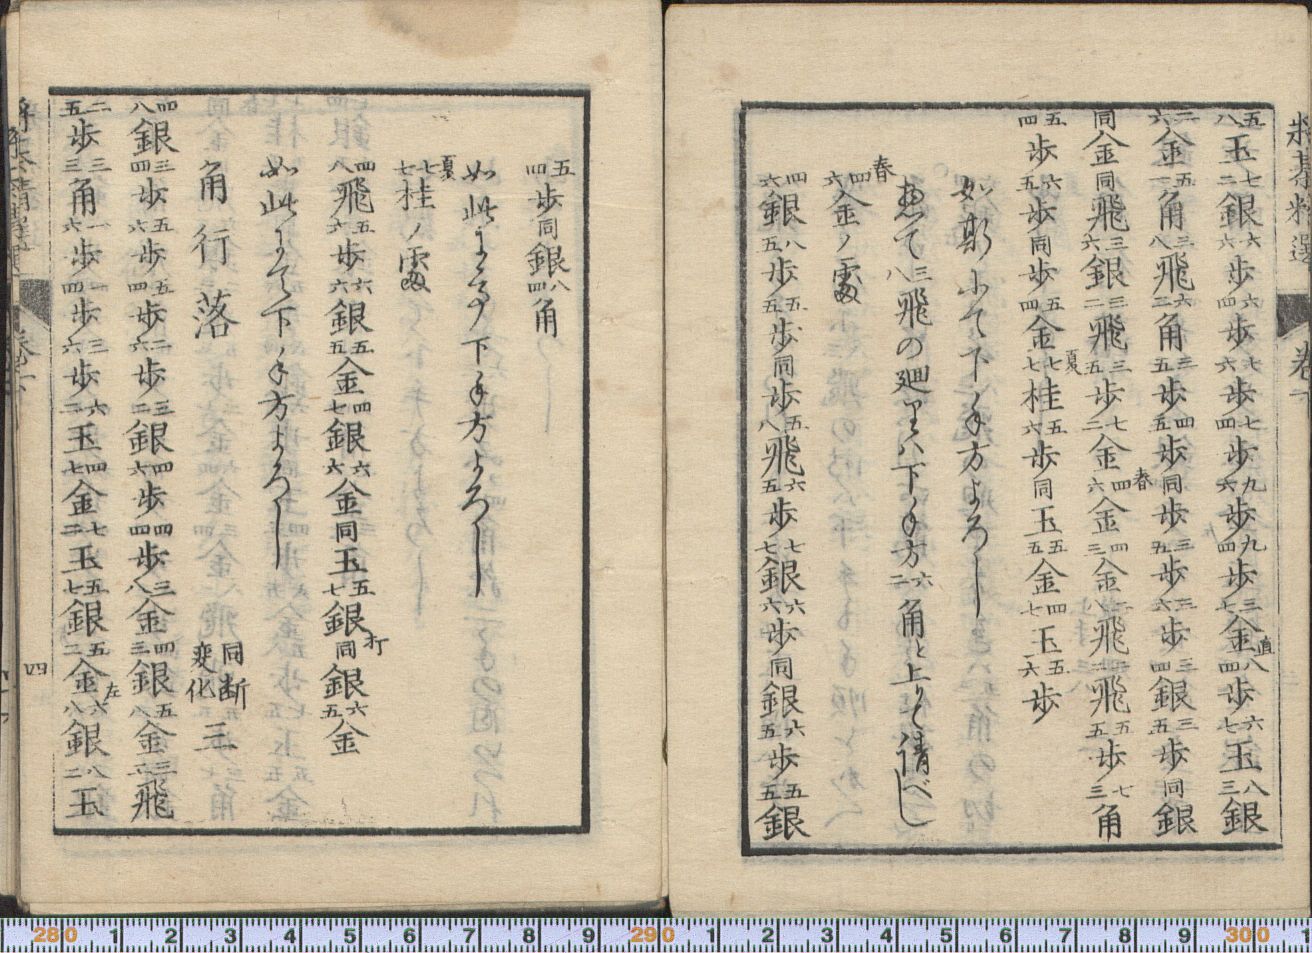 将棊精選 巻
五八玉七二銀六六歩六四歩七六歩七四歩九六歩九四歩三七金直八四歩六七玉八三銀
二六金五一角三八飛六二角三五歩四五歩同歩三五歩三六歩三四銀三五歩同銀
同金同飛三六銀三二飛三五歩七二金四六金春四三金一八飛二二飛五五歩七三角
五四歩六五歩同歩五四金七七桂夏五六歩同玉五五金四七玉五六歩
如斯にて下手方よろし
惣て三八飛の廻りハ下手方六二角と上らハ請べし
春四六金ノ處
四六銀八五歩五五歩同歩五八飛六五歩七七銀六六歩同銀六五歩五五銀
五四歩同銀八四角
如此にて下手方よろし
夏七七桂ノ處
四八飛五六歩六六銀五五金四七銀六六金同玉五七銀打同銀六五金
如此にて下手方よろし
角行落 同断変化 三
四八銀三四歩五六歩五四歩二六歩三二銀四六歩四四歩三八金四三銀五八金三二飛
二五歩三三角一六歩一四歩三六歩六二玉四七金七二玉五七銀五二金左六八銀八二玉
四